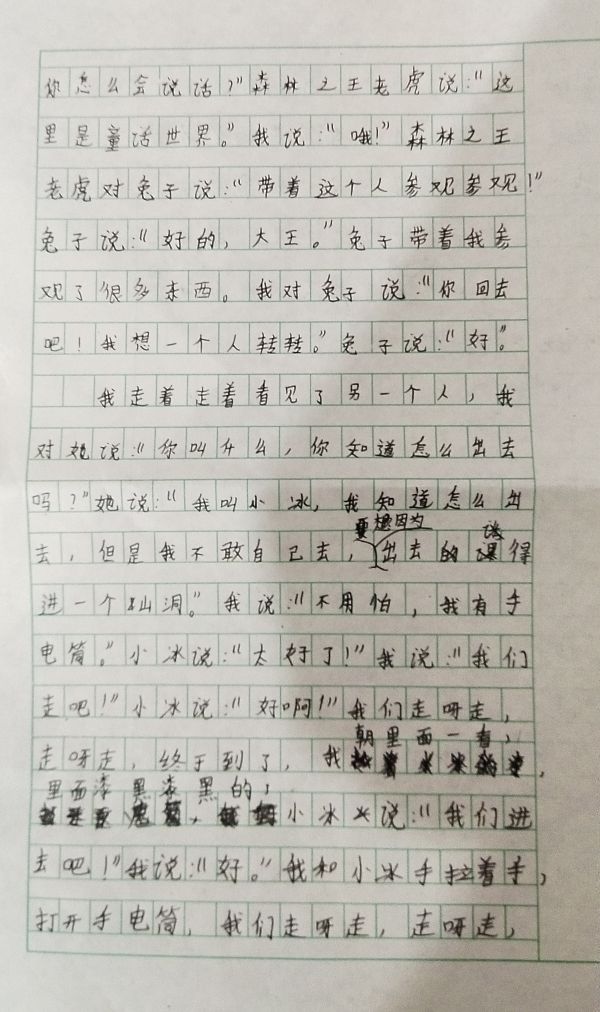 你怎么会说话？”森林之王老虎说：“这
里是童话世界。”我说：“哦！”森林之王
老虎对兔子说：“带着这个人参观参观！”
兔子说：“好的，大王。”兔子带着我参
观了很多东西。我对兔子说：“你回去
吧！我想一个人转转。”兔子说：“好。”
我走着走着看见了另一个人，我
对她说：“你叫什么，你知道怎么出去
吗？”她说：“我叫小冰，我知道怎么出
要想因为
去，但是我不敢自己去，出去的话得
进一个山洞。”我说：“不用怕，我有手
电筒。”小冰说：“太好了！”我说：“我们
走吧！”小冰说：“好啊！”我们走呀走，
朝里面一看，
走呀走，终于到了，我
里面漆黑漆黑的，
小冰说：“我们进
去吧！”我说：“好。”我和小冰手拉着手，
打开手电筒，我们走呀走，走呀走，